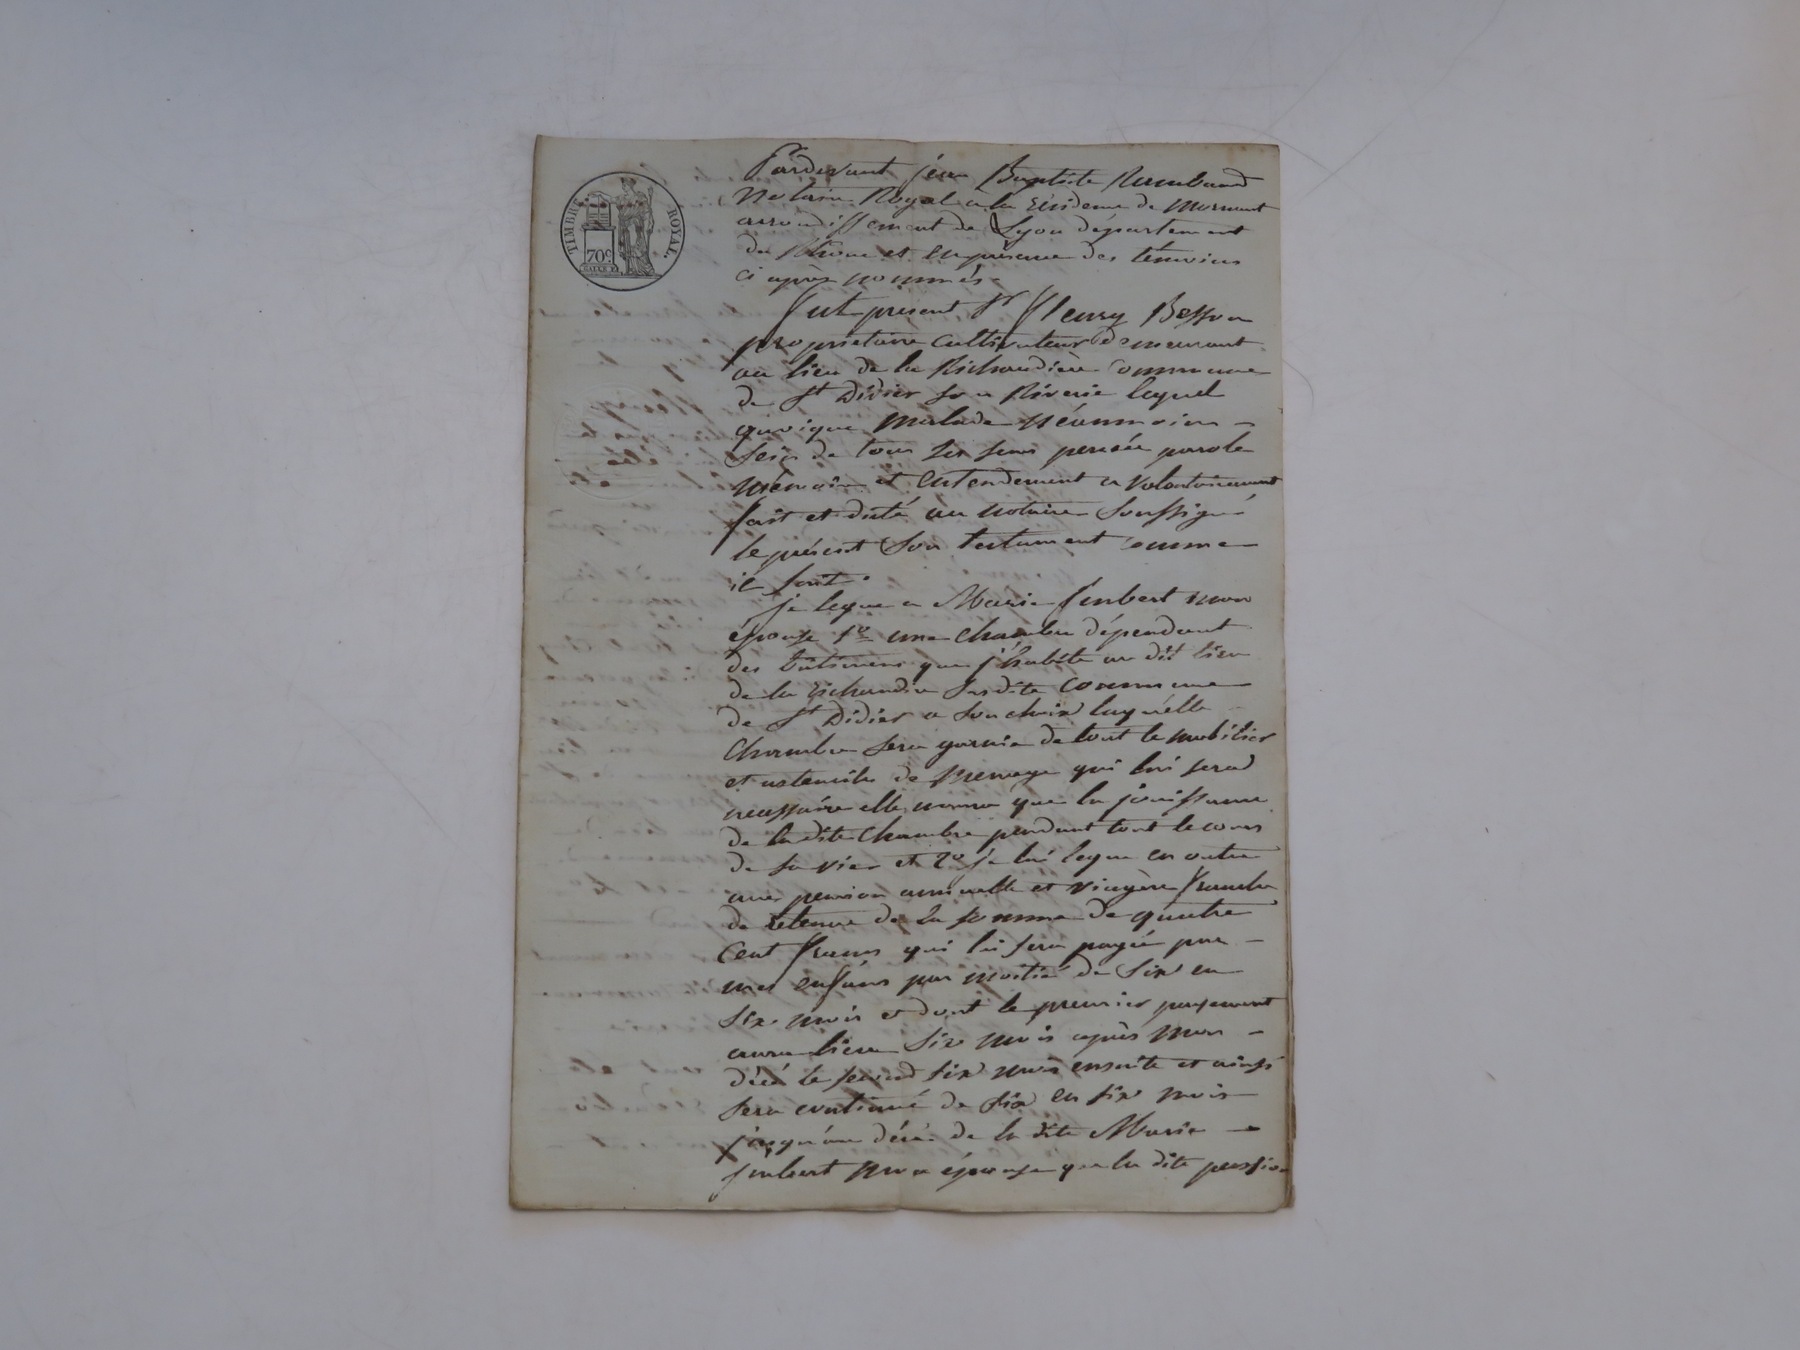 TIMBRE ROYAL.
70c.
Pardevant jean Baptiste Rambaud
Notaire Royal a la Résidence de Mornant
arrondissement de Lyon département
du Rhône et en présence des témoins
ci après nommés
fut présent Sr fleury Besson
propriétaire cultivateur demeurant
au lieu de la Richaudière commune
de St Didier sous Riverie lequel
quoique malade néanmoins
sein de tous ses sens pensée parole
mémoire et entendement a volontairement
fait et dicté au notaire soussigné
le présent son testament comme
il suit.
je legue a Marie Imbert mon
épouse 1º une chambre dépendant
des bâtimens que j'habite au dit lieu
de la Richaudiere susdite commune
de St Didier a son choix laquelle
chambre sera garnie de tout le mobilier
et ustensiles de menage qui lui sera
necessaire elle naura que la jouissance
de la dite chambre pendant tout le cours
de sa vie et 2º je lui legue en outre
une pension annuelle et viagère franche
de retenue de la somme de quatre
cent francs qui lui sera payée par
mes enfans par moitié de six en
six mois et dont le premier payement
aura lieu six mois après mon
décé le second six mois ensuite et ainsi
sera continué de six en six mois
jusqu'au décé de la dite Marie
Imbert mon épouse que la dite pension